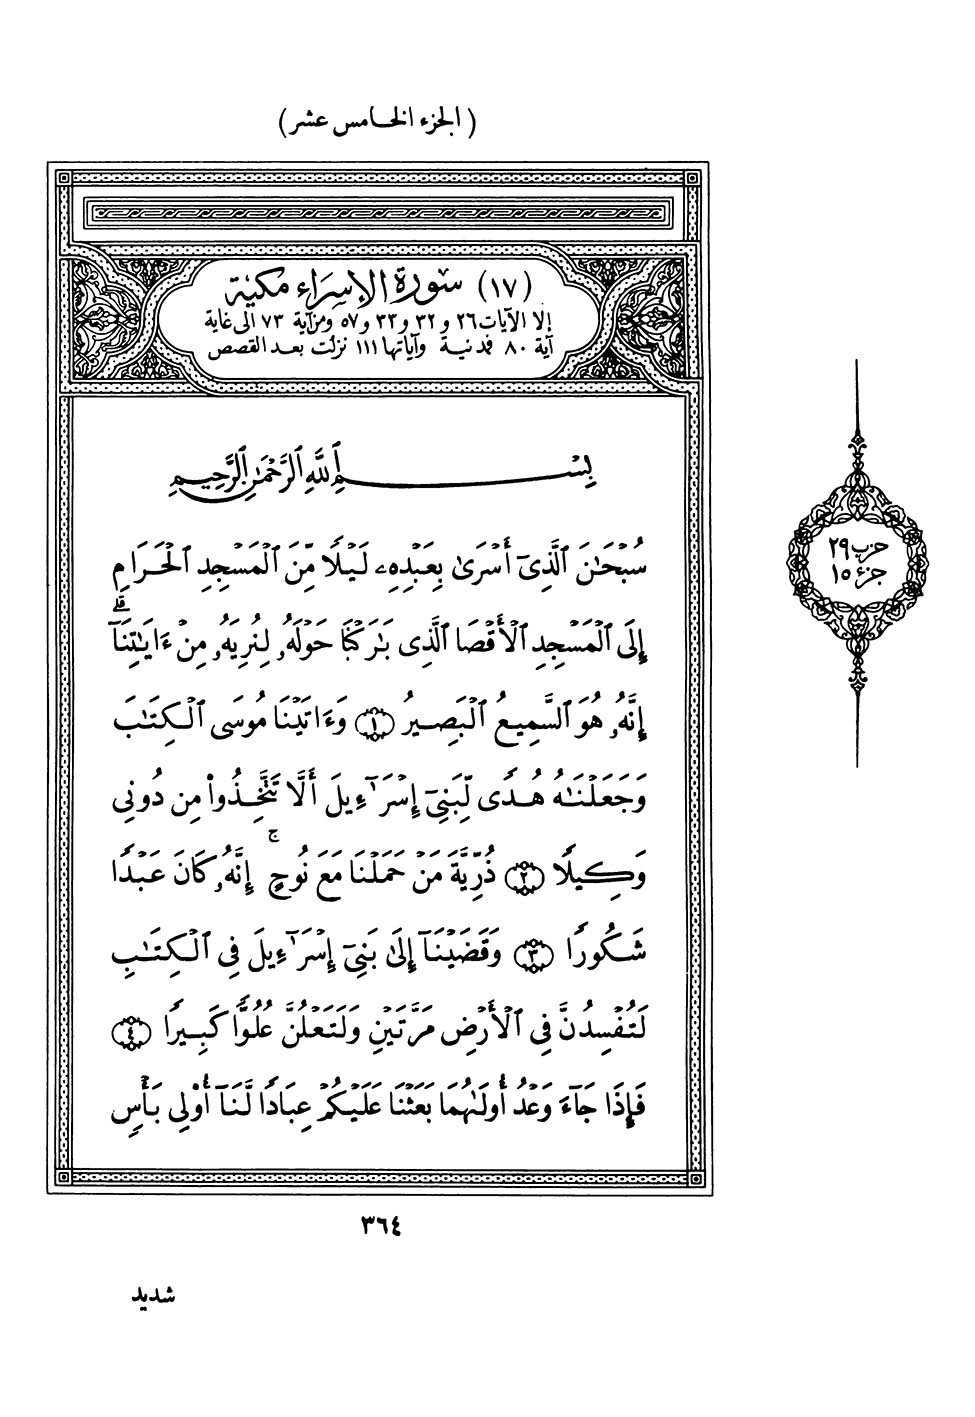 (الجزء الخامس عشر)
(١٧) سورة الإسراء مكية
إلا الآيات ٢٦ و ٣٢ و ٣٣ و ٥٧ ومن آية ٧٣ الى غاية
آية ٨٠ فمدنية وآياتها ١١١ نزلت بعد القصص
بِسْمِ ٱللَّهِ ٱلرَّحْمَٰنِ ٱلرَّحِيمِ
سُبْحَٰنَ ٱلَّذِىٓ أَسْرَىٰ بِعَبْدِهِۦ لَيْلًا مِّنَ ٱلْمَسْجِدِ ٱلْحَرَامِ
إِلَى ٱلْمَسْجِدِ ٱلْأَقْصَا ٱلَّذِى بَٰرَكْنَا حَوْلَهُۥ لِنُرِيَهُۥ مِنْ ءَايَٰتِنَآ ۚ
إِنَّهُۥ هُوَ ٱلسَّمِيعُ ٱلْبَصِيرُ ١ وَءَاتَيْنَا مُوسَى ٱلْكِتَٰبَ
وَجَعَلْنَٰهُ هُدًى لِّبَنِىٓ إِسْرَٰٓءِيلَ أَلَّا تَتَّخِذُوا۟ مِن دُونِى
وَكِيلًا ٢ ذُرِّيَّةَ مَنْ حَمَلْنَا مَعَ نُوحٍ ۚ إِنَّهُۥ كَانَ عَبْدًا
شَكُورًا ٣ وَقَضَيْنَآ إِلَىٰ بَنِىٓ إِسْرَٰٓءِيلَ فِى ٱلْكِتَٰبِ
لَتُفْسِدُنَّ فِى ٱلْأَرْضِ مَرَّتَيْنِ وَلَتَعْلُنَّ عُلُوًّا كَبِيرًا ٤
فَإِذَا جَآءَ وَعْدُ أُولَىٰهُمَا بَعَثْنَا عَلَيْكُمْ عِبَادًا لَّنَآ أُو۟لِى بَأْسٍ
حزب ٢٩
جزء ١٥
٣٦٤
شديد